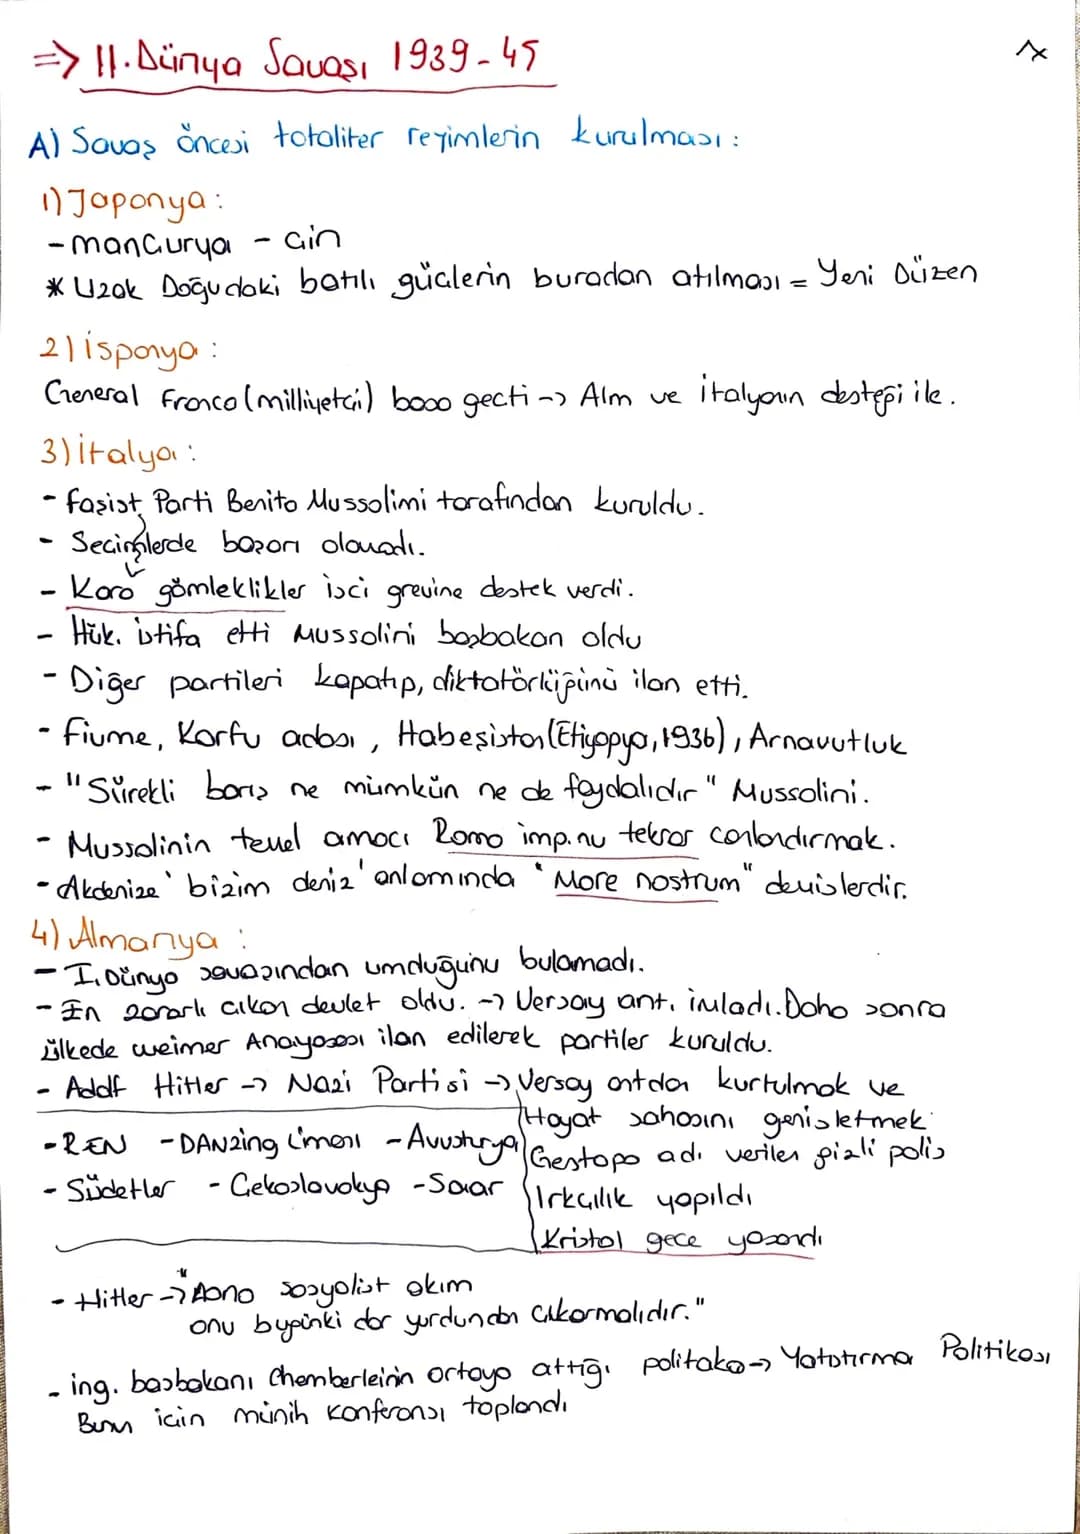 => II. Dünya Savaşı 1939-45
A) Savaş öncesi totaliter rejimlerin kurulması:
1) Japonya:
- mançurya - çin
* Uzak Doğudaki batılı güçlerin buradan atılması = Yeni Düzen
2) İspanya:
General Franco (milliyetçi) başa geçti -> Alm ve İtalyanın desteği ile.
3) İtalya:
- faşist Parti Benito Mussolimi tarafından kuruldu.
- Seçimlerde başarı olamadı.
- Kara gömleklikler işçi grevine destek verdi.
- Hük. istifa etti Mussolini başbakan oldu
- Diğer partileri kapatıp, diktatörlüğünü ilan etti.
- fiume, Korfu adası, Habeşistan (Etiyopya, 1936), Arnavutluk
- "Sürekli barış ne mümkün ne de faydalıdır" Mussolini.
- Mussolinin temel amacı Roma imp.nu tekrar canlandırmak.
- Akdenize 'bizim deniz' anlamında "More nostrum" demişlerdir.
4) Almanya:
- I. Dünya savaşından umduğunu bulamadı.
- En zararlı çıkan devlet oldu. -> Versay ant. imladı. Daha sonra
ülkede weimer Anayasası ilan edilerek partiler kuruldu.
- Adolf Hitler -> Nazi Partisi -> Versay antdan kurtulmak ve
Hayat sahasını genişletmek
- REN - DANzing Limanı - Avusturya
Gestapo adı verilen gizli polis
- Südetler - Çekoslavakya - Saar
Irkçılık yapıldı
Kristal gece yaşandı
- Hitler -> "Bana sosyalist akım
onu bugünki dar yurdundan çıkarmalıdır."
- ing. başbakanı Chemberleinin ortaya attığı politaka -> Yatıştırma Politikası
Bunun için münih konferansı toplandı